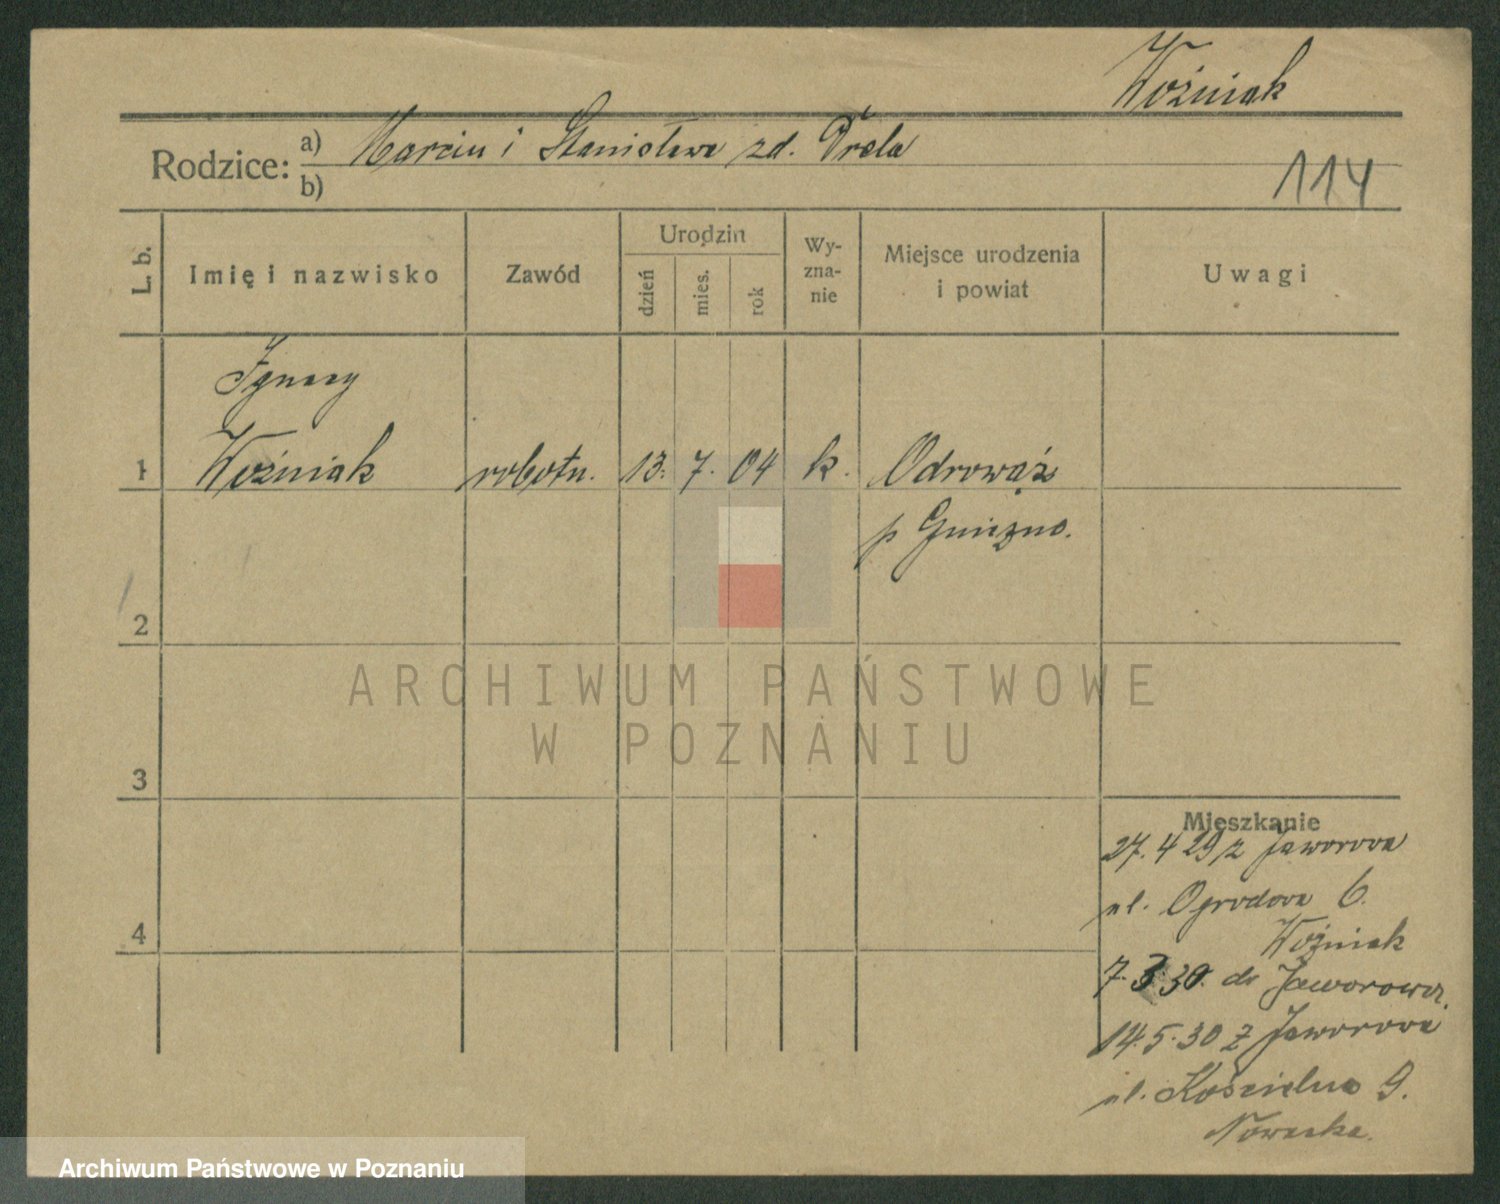 Woźniak
Rodzice: a) Marcin i Stanisława zd. Prela
b)
114
L. b.
Imię i nazwisko
Zawód
Urodzin
dzień
mies.
rok
Wy-
zna-
nie
Miejsce urodzenia
i powiat
Uwagi
Ignacy
1 Woźniak robotn. 13. 7. 04 k. Odrowąż
p Gniezno.
2
3
4
ARCHIWUM PAŃSTWOWE
W POZNANIU
Mieszkanie
27. 4 29 z Jaworowa
ul. Ogrodowa 6.
Woźniak
7. 3. 30. do Jaworowa.
14. 5. 30 z Jaworowa
ul. Kościelna 9.
Nowacka.
Archiwum Państwowe w Poznaniu